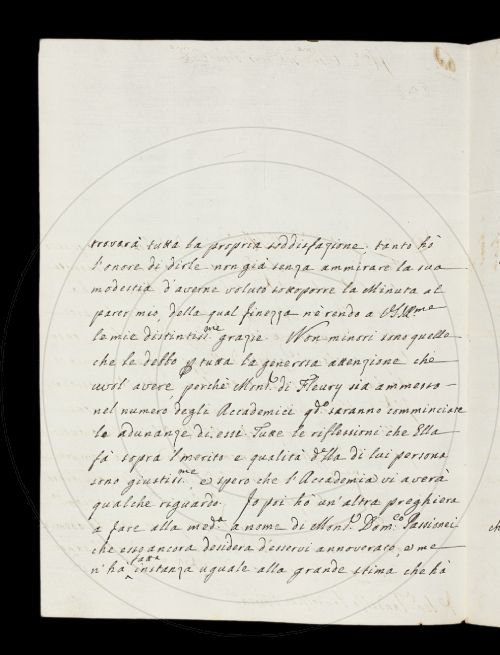 trovarà tutta la propria soddisfazione. tanto hò
l'onore di dirle non già senza ammirare la sua
modestia d'averne voluto sottoporre la Minuta al
parer mio, della qual finezza ne rendo a VS Ill.me
le mie distintiss.me grazie. Non minori sono quelle
che le debbo p tutta la generosa attenzione che
vuol' avere perche Mons.r di Fleury sia ammesso
nel numero degli Accademici q.do saranno comminciate
le adunanze di essi. Tutte le riflessioni che Ella
fà sopra l'merito e qualità d.lla di lui persona
sono giustiss.me e spero che l'Accademia vi averà
qualche riguardo. Io poi hò un'altra preghiera
a fare alla med.a a nome di Mons.r Dom.co Passionei
che esso ancora desidera d'esservi annoverato, e me
n'hà fatta instanza uguale alla grande stima che hà